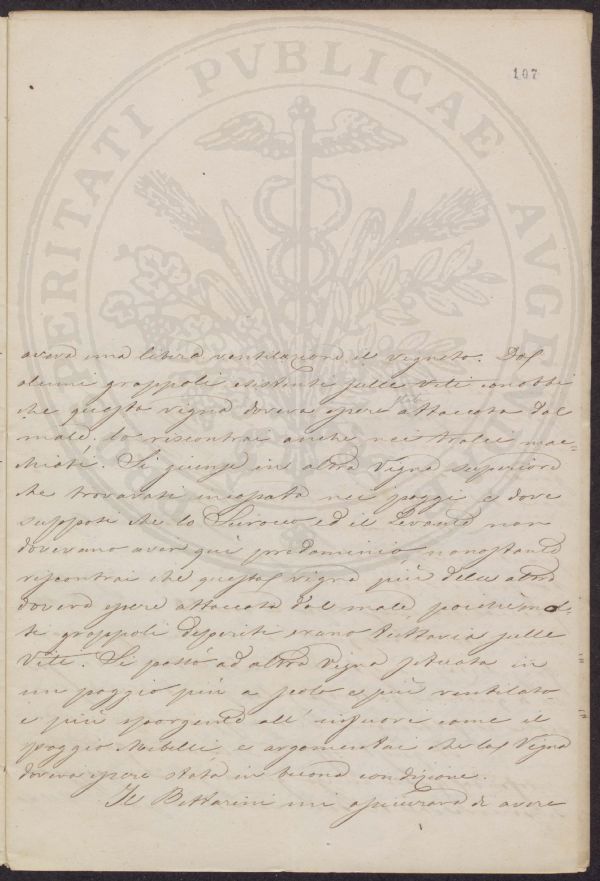 107
PROSPERITATI PVBLICAE AVGENDAE
avera una libera ventilazione il vigneto. Da
alcuni grappoli esistenti sulle viti conobbi
che questa vigna doveva essere stata attaccata dal
male. Lo riscontrai anche nei tralci mac=
chiati. Si giunse in altra Vigna superiore
che trovavasi incassata nei poggi e dove
supposi che lo Scirocco ed il Levante non
dovevano aver quì predominio, nonostante
riscontrai che questa vigna più delle altre
doveva essere attaccata dal male, poichè mol=
ti grappoli deperiti erano tuttavia sulle
Viti. Si passò ad altra Vigna situata in
un poggio più a solo e più ventilato
e più sporgente all' infuori come il
poggio e argomentai che la Vigna
doveva essere stata in buona condizione.
Il Bettarini mi assicurava di avere